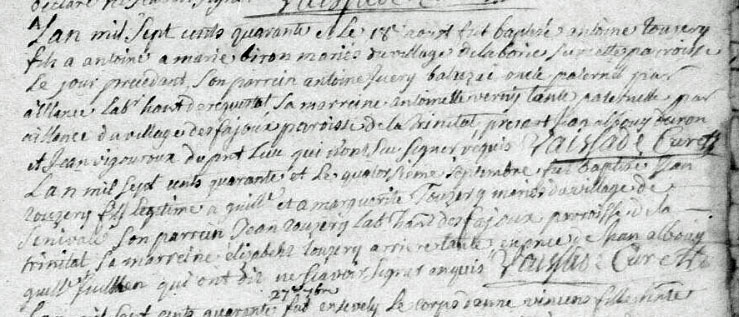 Lan mil sept cents quarante et le 18e aout fut baptisé antoine Touzery
fils a antoine a marie biron mariés du village de laborie sur cette parroisse
le jour precedant, son parrein antoine baluzac oncle paternel par
aillance labr hant de sa marreine antoinette verniy tante paternelle par
aillance du village des fajoux parroisse de la trinitat, presant Jean albouy
et Jean vigouroux du pnt lieu qui nont sçu signer requis Vaissade Curé
Lan mil sept cents quarante et le quatorsieme septembre fut baptisé Jean
touzery fils legitime a guilhe et a marguerite Touzery mariés du village de
son parrein Jean touzery labr hant des fajoux parroisse de la
trinitat sa marreine elizabet touzery arriere tante en pnce de Jean albouy
guilhe qui ont dit ne sçavoir signer enquis Vaissade Curé
27e 7bre
Lan mil sept cents quarante fut ensevely le corps danne vincens fille